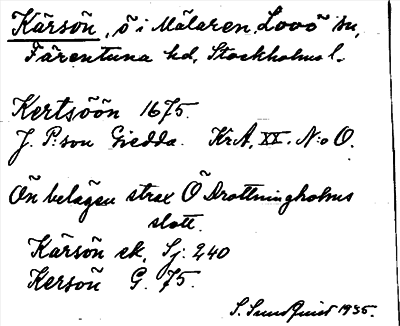 Kärsön, ö i Mälaren, Lovö sn,
Färentuna hd, Stockholms l.
Kertsöön 1675.
J. P:son Gedda. KrA, XX. N:o O.
Ön belägen strax Ö Drottningholms
slott.
Kärsön ek, Sj: 240
Kersön G. 75.
S. Sundquist 1935.